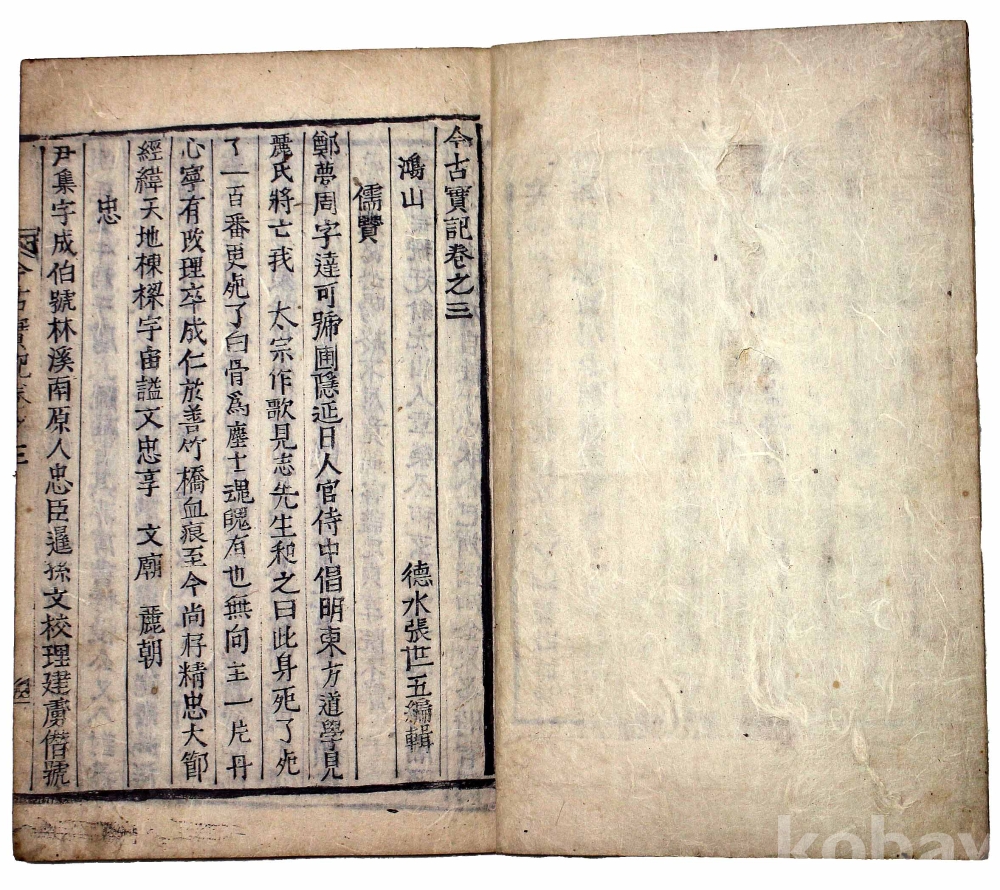 今古寶記卷之三
鴻山 德水張世五編輯
儒賢
鄭夢周字達可號圃隱延日人官侍中倡明東方道學見
麗氏將亡我 太宗作歌見志先生和之曰此身死了死
了一百番更死了白骨爲塵土魂魄有也無向主一片丹
心寧有改理卒成仁於善竹橋血痕至今尚存精忠大節
經緯天地棟樑宇宙謚文忠享 文廟 麗朝
忠
尹集字成伯號林溪南原人忠臣暹孫文校理建虜僭號
今古寶記卷之三
kobay